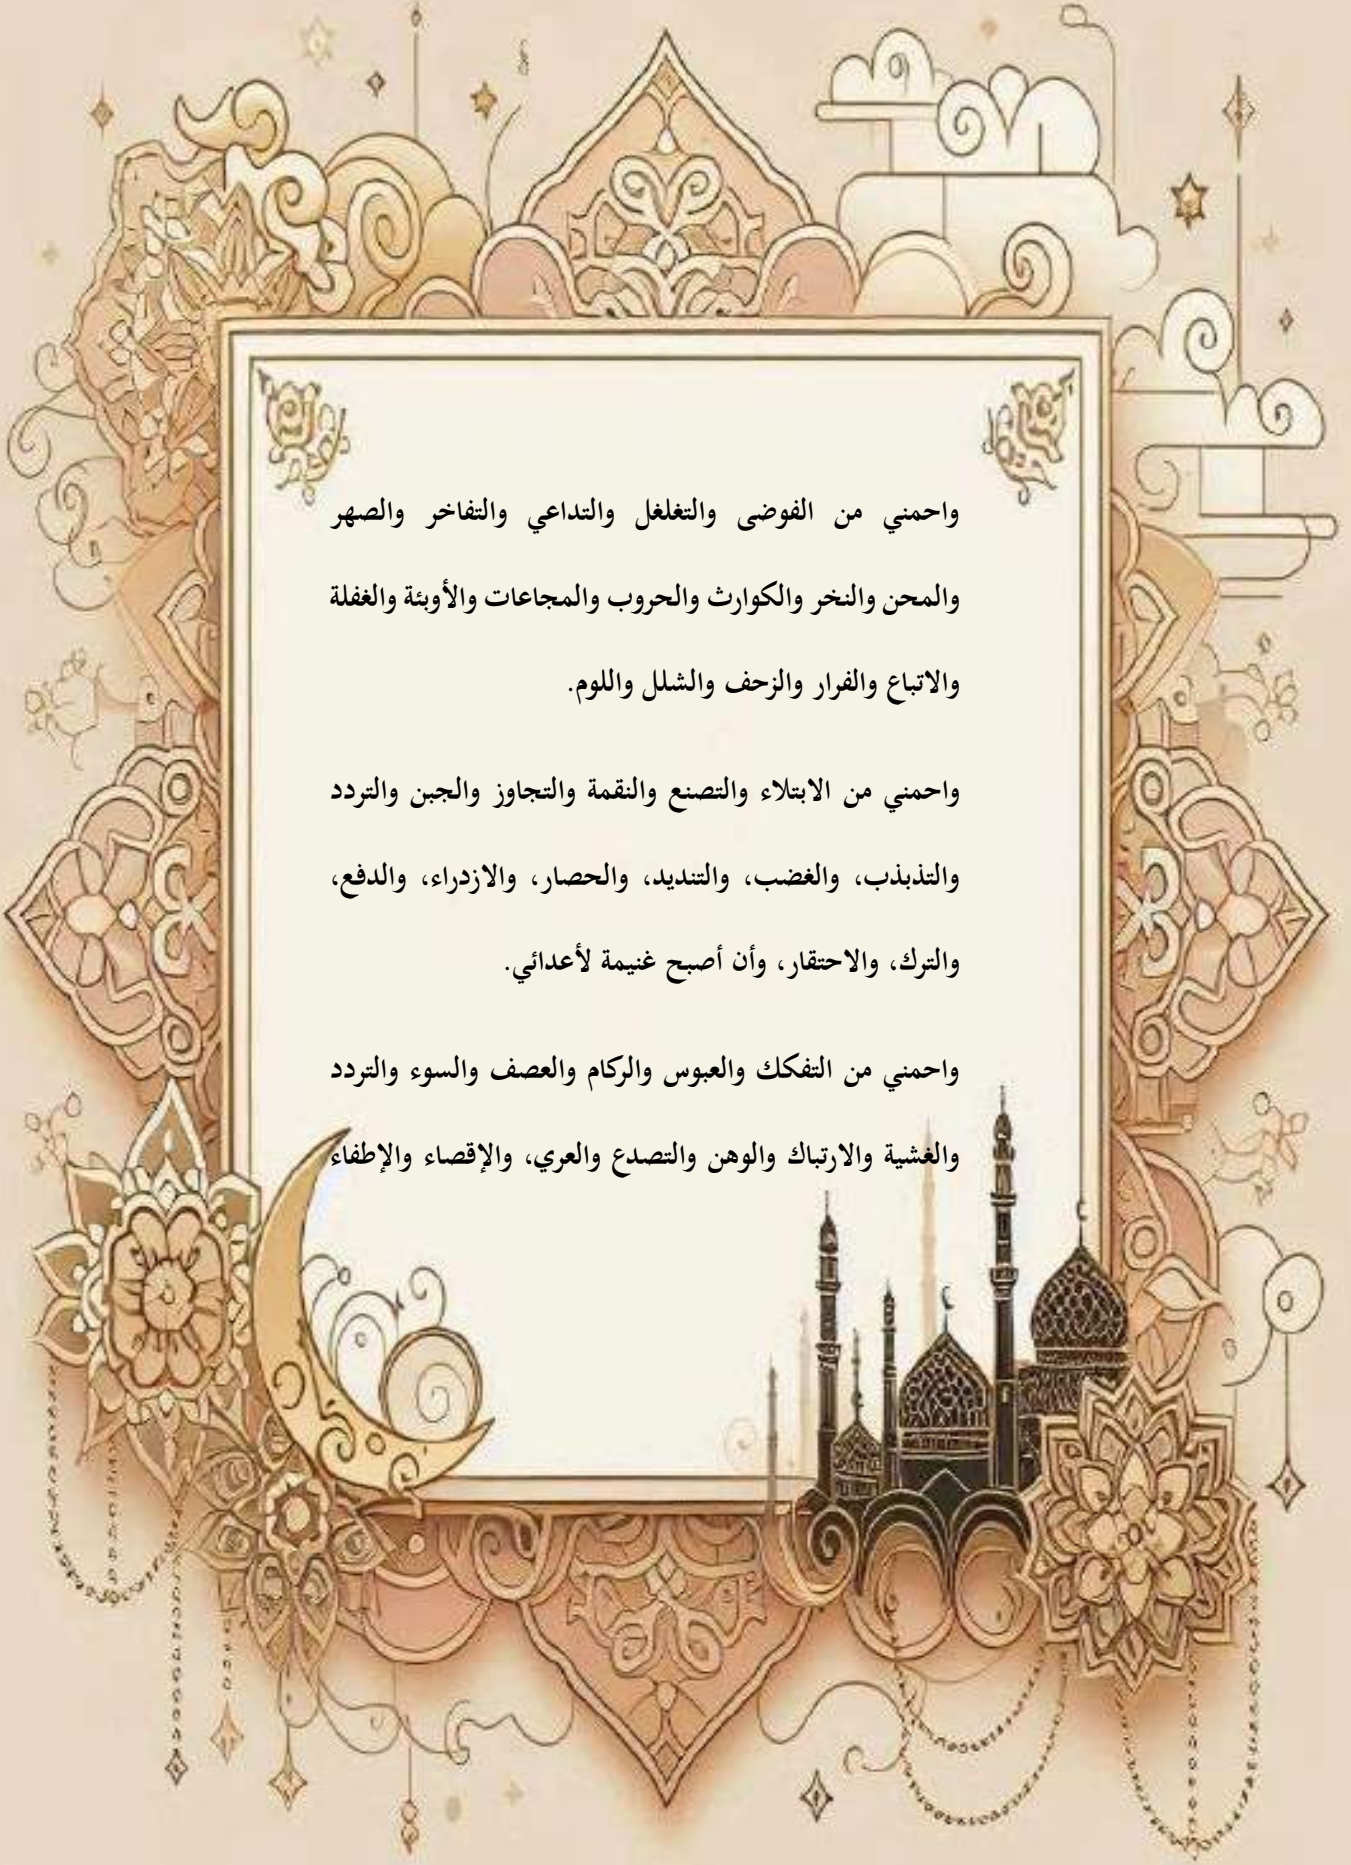 واحمني من الفوضى والتغلغل والتداعي والتفاخر والصهر
والمحن والنخر والكوارث والحروب والمجاعات والأوبئة والغفلة
والاتباع والفرار والزحف والشلل واللوم.
واحمني من الابتلاء والتصنع والنقمة والتجاوز والجبن والتردد
والتذبذب، والغضب، والتنديد، والحصار، والازدراء، والدفع،
والترك، والاحتقار، وأن أصبح غنيمة لأعدائي.
واحمني من التفكك والعبوس والركام والعصف والسوء والتردد
والغشية والارتباك والوهن والتصدع والعري، والإقصاء والإطفاء